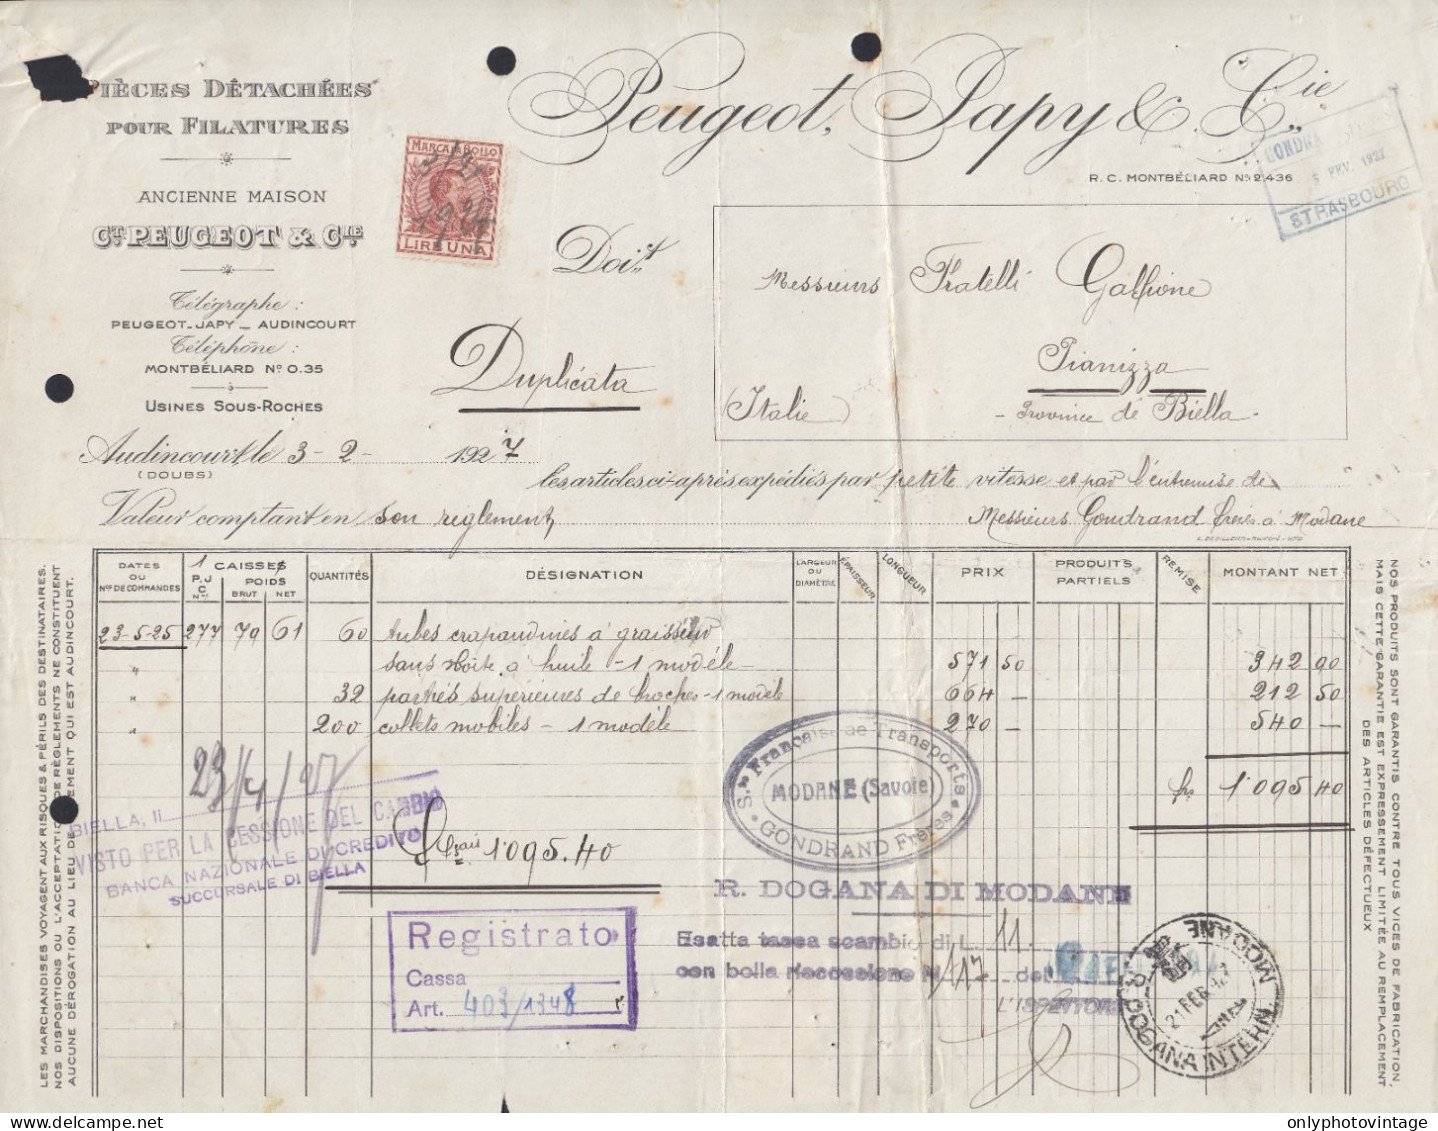 PIÈCES DÉTACHÉES
POUR FILATURES
ANCIENNE MAISON
Ct. PEUGEOT & Cie
Télégraphe :
PEUGEOT-JAPY _ AUDINCOURT
Téléphone :
MONTBÉLIARD No 0.35
USINES SOUS-ROCHES
Peugeot, Japy & Cie.
R. C. MONTBÉLIARD No 2.436
GONDRA
5 FEV. 1927
STRASBOURG
MARCA DA BOLLO
LIRE UNA
Doit
Messieurs Fratelli Galfione
Pianizza
(Italie) - Province de Biella -
Duplicata
Audincourt, le 3 - 2 - 1927
(DOUBS)
les articles ci-après expédiés par petite vitesse et par l'entremise de
Valeur comptant en son reglement Messieurs Gondrand frères à Modane
DATES OU Nos DE COMMANDES
1 CAISSES
P.J.C. Nos
POIDS
BRUT NET
QUANTITÉS
DÉSIGNATION
LARGEUR OU DIAMÈTRE
ÉPAISSEUR
LONGUEUR
PRIX
PRODUITS PARTIELS
REMISE
MONTANT NET
23-5-25 277 79 61 60 tubes crapaudines à graisseur
" sans boite à huile - 1 modèle 571 50 342 90
" 32 parties supérieures de broches - 1 modèle 664 - 212 50
" 200 collets mobiles - 1 modèle 270 - 540 -
frs 1'095 40
Frais 1'095.40
23/4/27
BIELLA, Il
VISTO PER LA CESSIONE DEL CAMBIO
BANCA NAZIONALE DI CREDITO
SUCCURSALE DI BIELLA
Sté Française de Transports
MODANE (Savoie)
GONDRAND Frères
R. DOGANA DI MODANE
Esatta tassa scambio di L. 11.
con bolla riscossione N. 117 del
L'ISPETTORE
Registrato
Cassa
Art. 403/1348
R. DOGANA INTERN. MODANE
21 FEB. 927
LES MARCHANDISES VOYAGENT AUX RISQUES & PÉRILS DES DESTINATAIRES.
NOS DISPOSITIONS OU L'ACCEPTATION DE RÈGLEMENTS NE CONSTITUENT
AUCUNE DÉROGATION AU LIEU DE PAIEMENT QUI EST AUDINCOURT.
NOS PRODUITS SONT GARANTIS CONTRE TOUS VICES DE FABRICATION,
MAIS CETTE GARANTIE EST EXPRESSEMENT LIMITÉE AU REMPLACEMENT
DES ARTICLES DÉFECTUEUX
onlyphotovintage